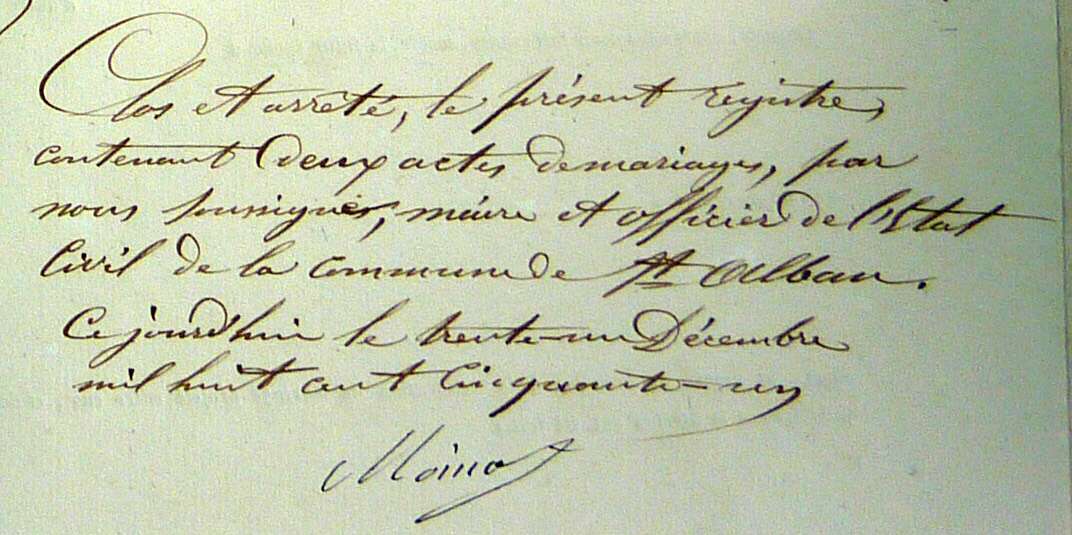 Clos et arrêté, le présent registre,
contenant deux actes de mariages, par
nous soussignés, maire et officier de l'Etat
Civil de la commune de St Alban.
Ce jourd'hui le trente-un Décembre
mil huit cent Cinquante-un